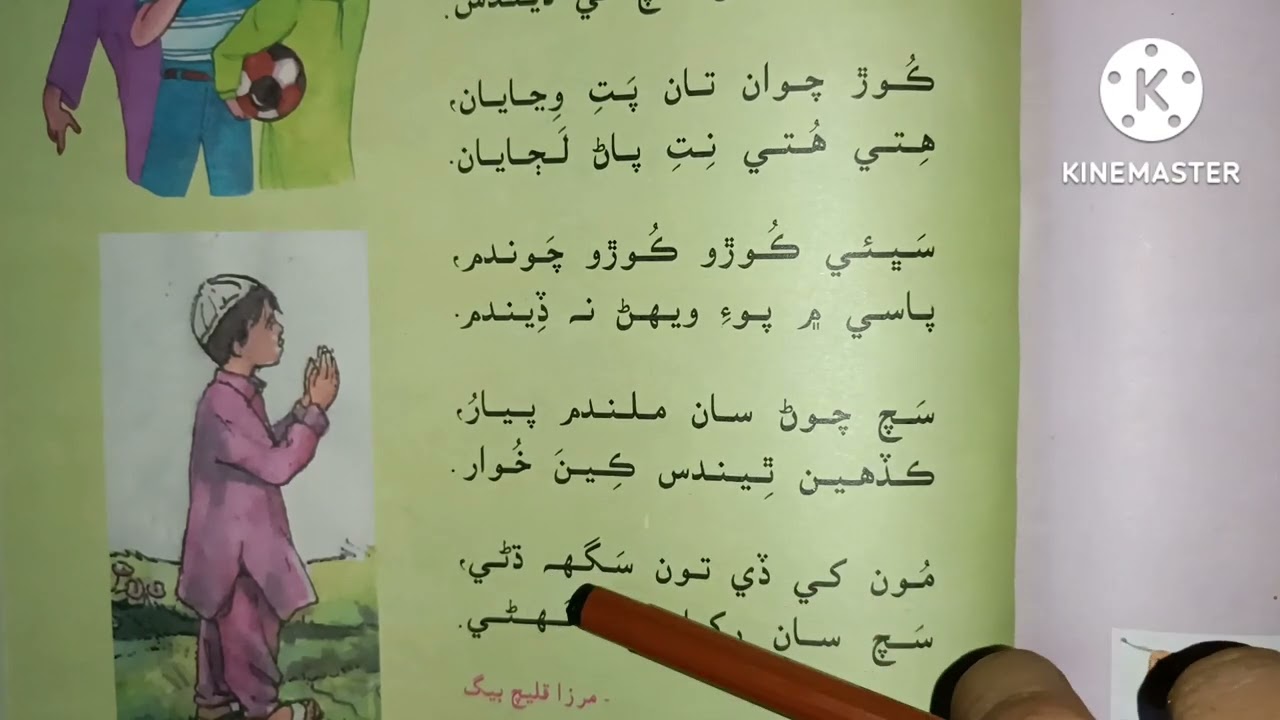 ڪُوڙ چوان تان پَتِ وِڃايان،
هِتي هُتي نِتِ پاڻ لَڄايان.
سَڀئي ڪُوڙو ڪُوڙو چَوندم،
پاسي ۾ پوءِ ويهڻ نہ ڏِيندم.
سَچ چوڻ سان ملندم پيارُ،
ڪڏهين ٿِيندس ڪِينَ خُوار.
مُون کي ڏي تون سَگهہ ڌڻي،
سَچ سان
- مرزا قليچ بيگ
KINEMASTER